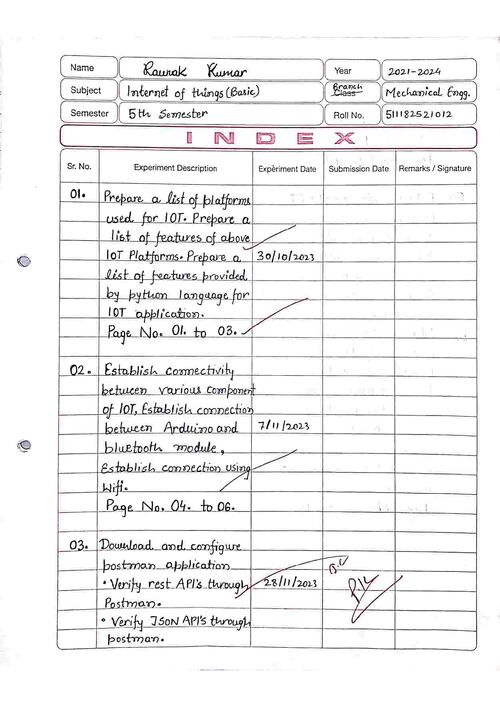 Name Raunak Kumar Year 2021-2024
Subject Internet of things (Basic) Branch Class Mechanical Engg.
Semester 5th Semester Roll No. 511182521012
INDEX
Sr. No. Experiment Description Expèriment Date Submission Date Remarks / Signature
01. Prepare a list of platforms
used for IOT. Prepare a
list of features of above
IOT Platforms. Prepare a 30/10/2023
list of features provided
by python language for
IOT application.
Page No. 01. to 03.
02. Establish connectivity
between various component
of IOT, Establish connection
between Arduino and 7/11/2023
bluetooth module,
Establish connection using
Wifi.
Page No. 04. to 06.
03. Download and configure
postman application
• Verify rest API's through 28/11/2023
Postman.
• Verify JSON API's through
postman.